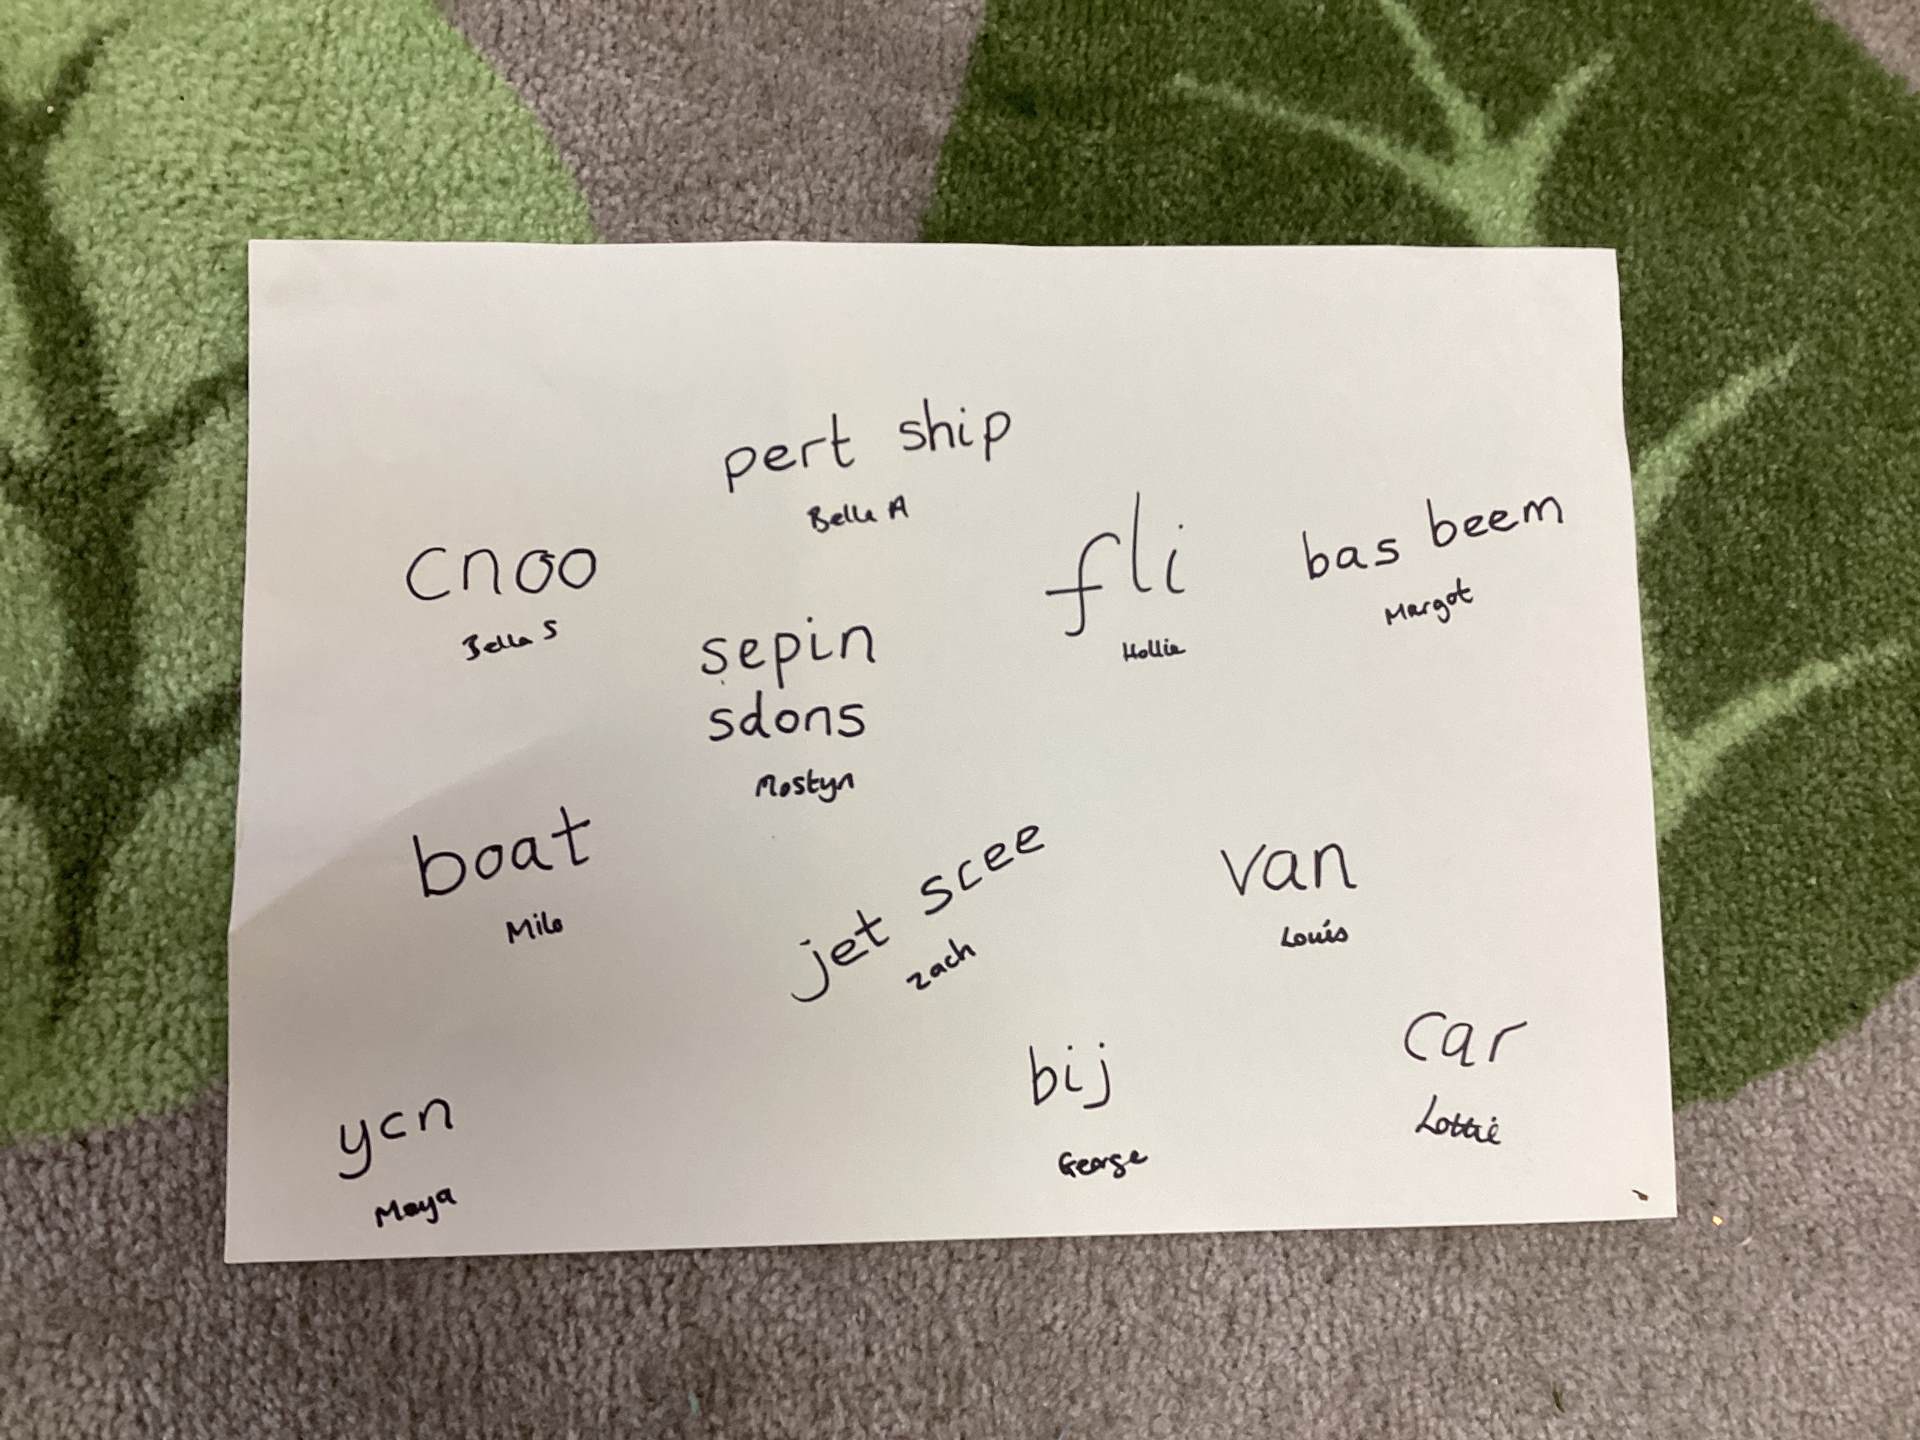 pert ship
Bella A
cnoo
Bella S
fli
Hollie
bas beem
Margot
sepin
sdons
Mostyn
boat
Milo
jet scee
Zach
van
Louis
ycn
Maya
bij
George
car
Lottie